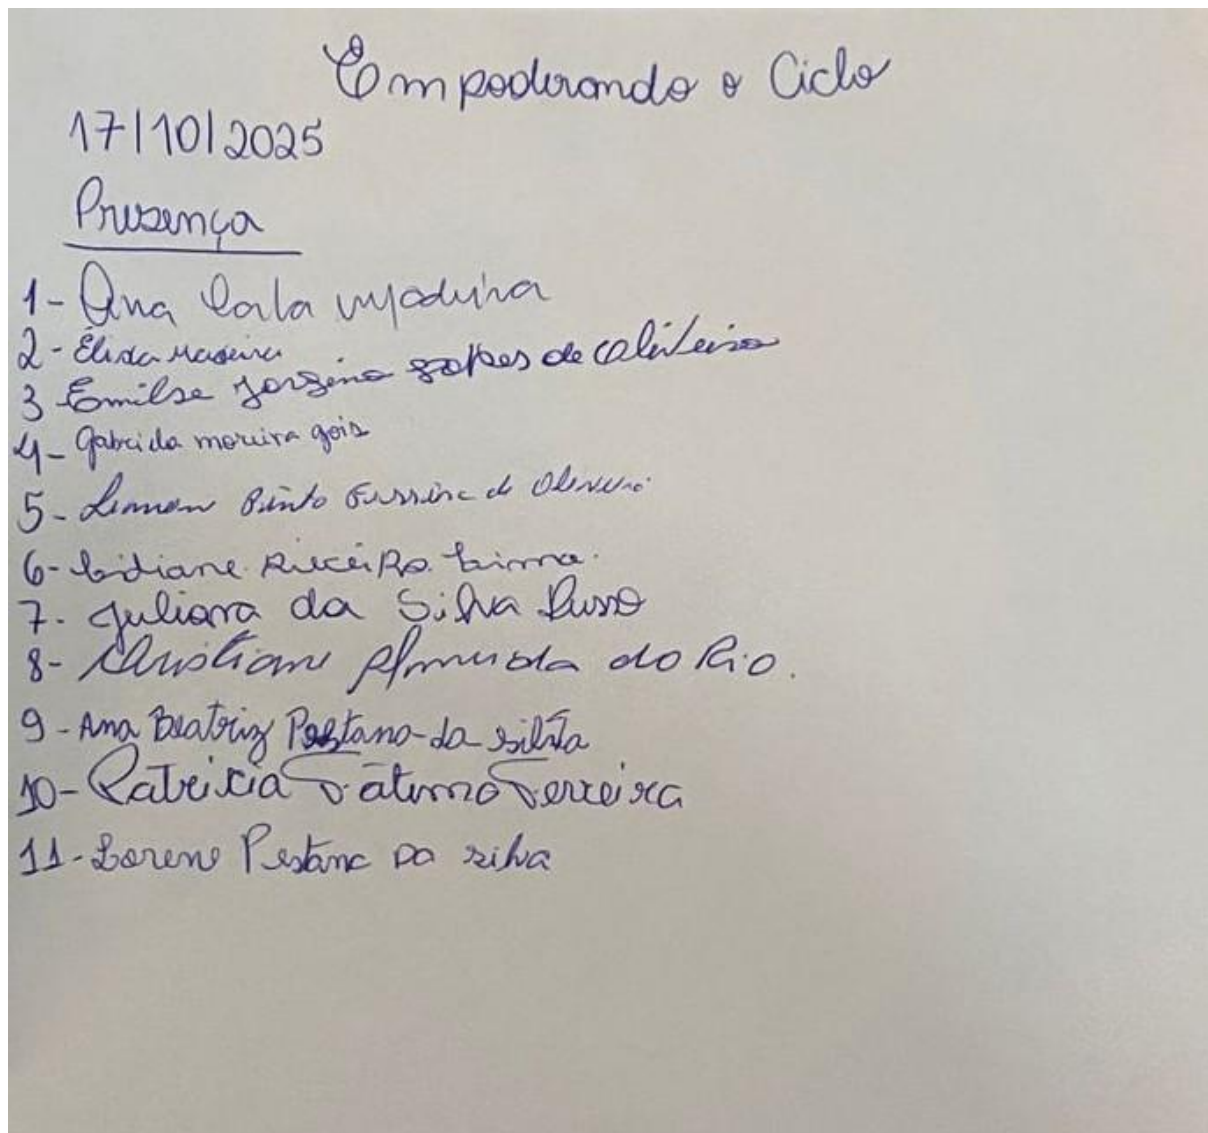 Empoderando o Ciclo
17/10/2025
Presença
1- Ana Carla Madeira
2- Élida Madeira
3 Emilse Jorgina Lopes de Oliveira
4- Gabriela moreira gois
5- Pinto Ferreira de Oliveira
6- Lidiane Ribeiro Lima.
7. Juliana da Silva Russo
8- Christiane Almeida do Rio.
9- Ana Beatriz Pestana da silva
10- Patricia Fátima Ferreira
11- Lorene Pestana Da silva